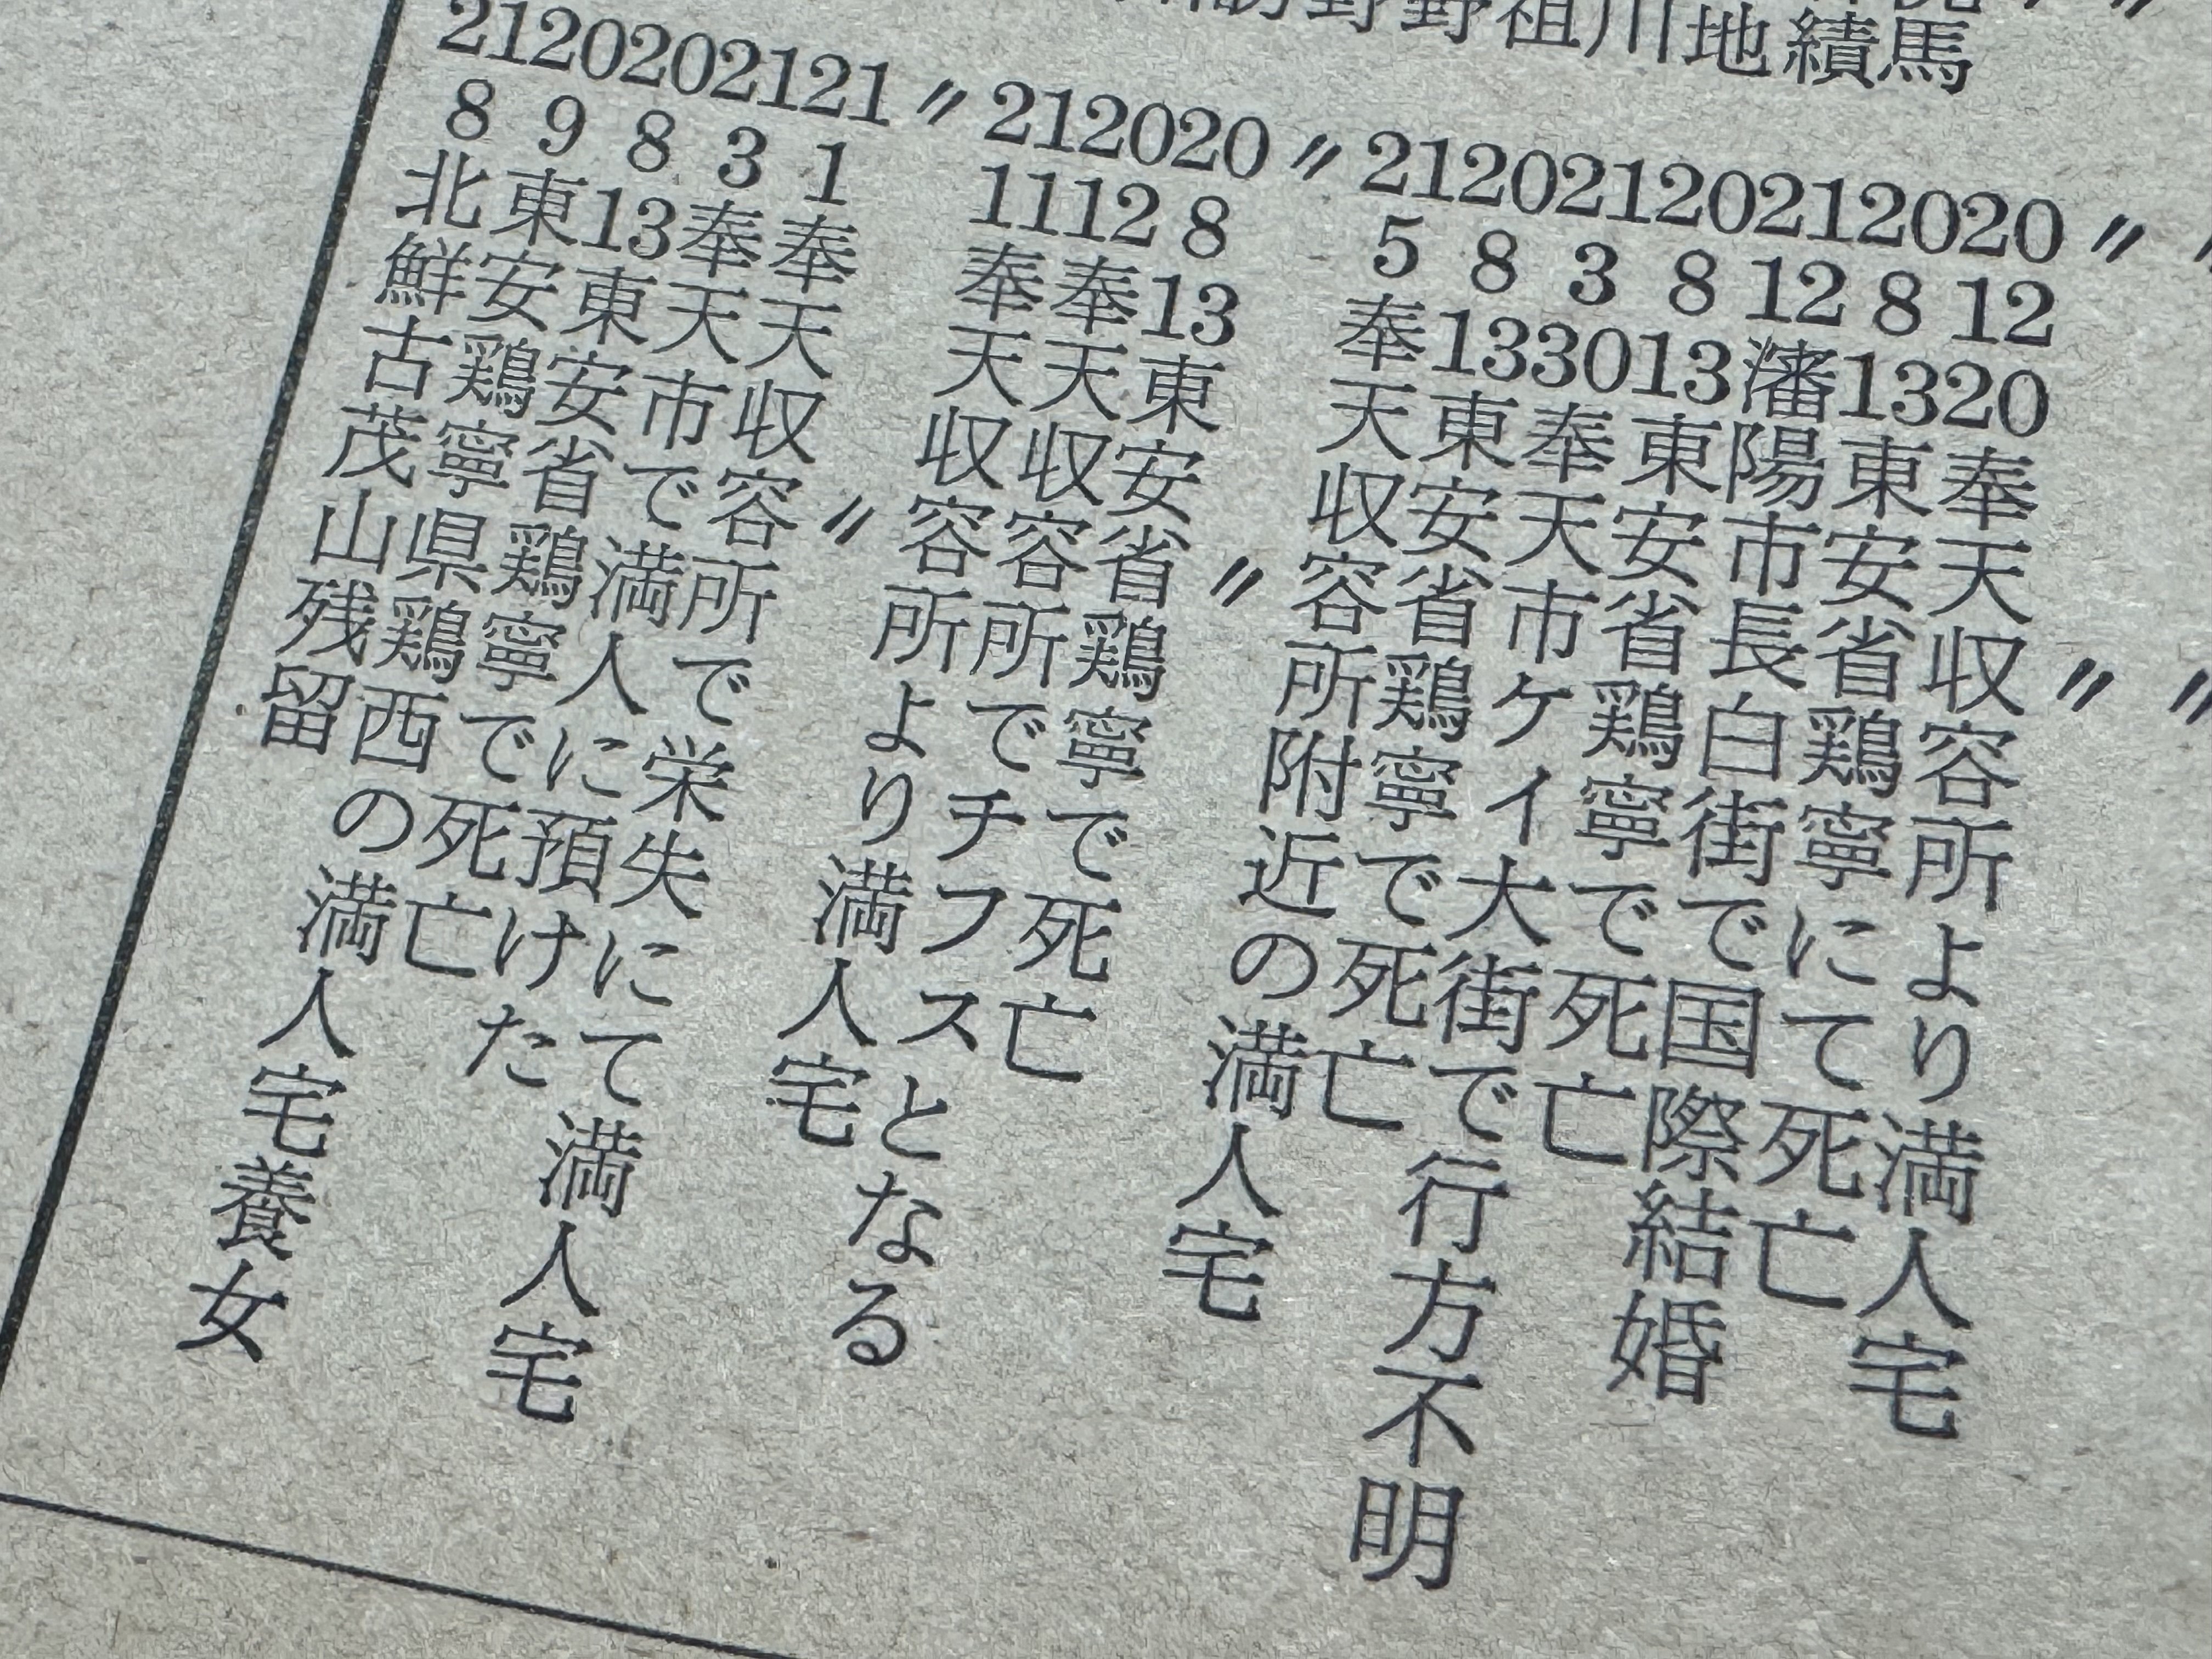 馬
績
地
川
祖
野
野
〃 〃
20 12 20 奉天収容所より満人宅
20 8 13 東安省鶏寧にて死亡
21 12 瀋陽市長白街で国際結婚
20 8 13 東安省鶏寧で死亡
21 3 30 奉天市ケイ大街で行方不明
20 8 13 東安省鶏寧で死亡
21 5 奉天収容所附近の満人宅
〃 〃
20 8 13 東安省鶏寧で死亡
20 12 奉天収容所でチフスとなる
21 11 奉天収容所より満人宅
〃 〃
21 1 奉天収容所で栄失にて満人宅
21 3 奉天市で満人に預けた
20 8 13 東安省鶏寧で死亡
20 9 東安鶏寧県鶏西の満人宅養女
21 8 北鮮古茂山残留